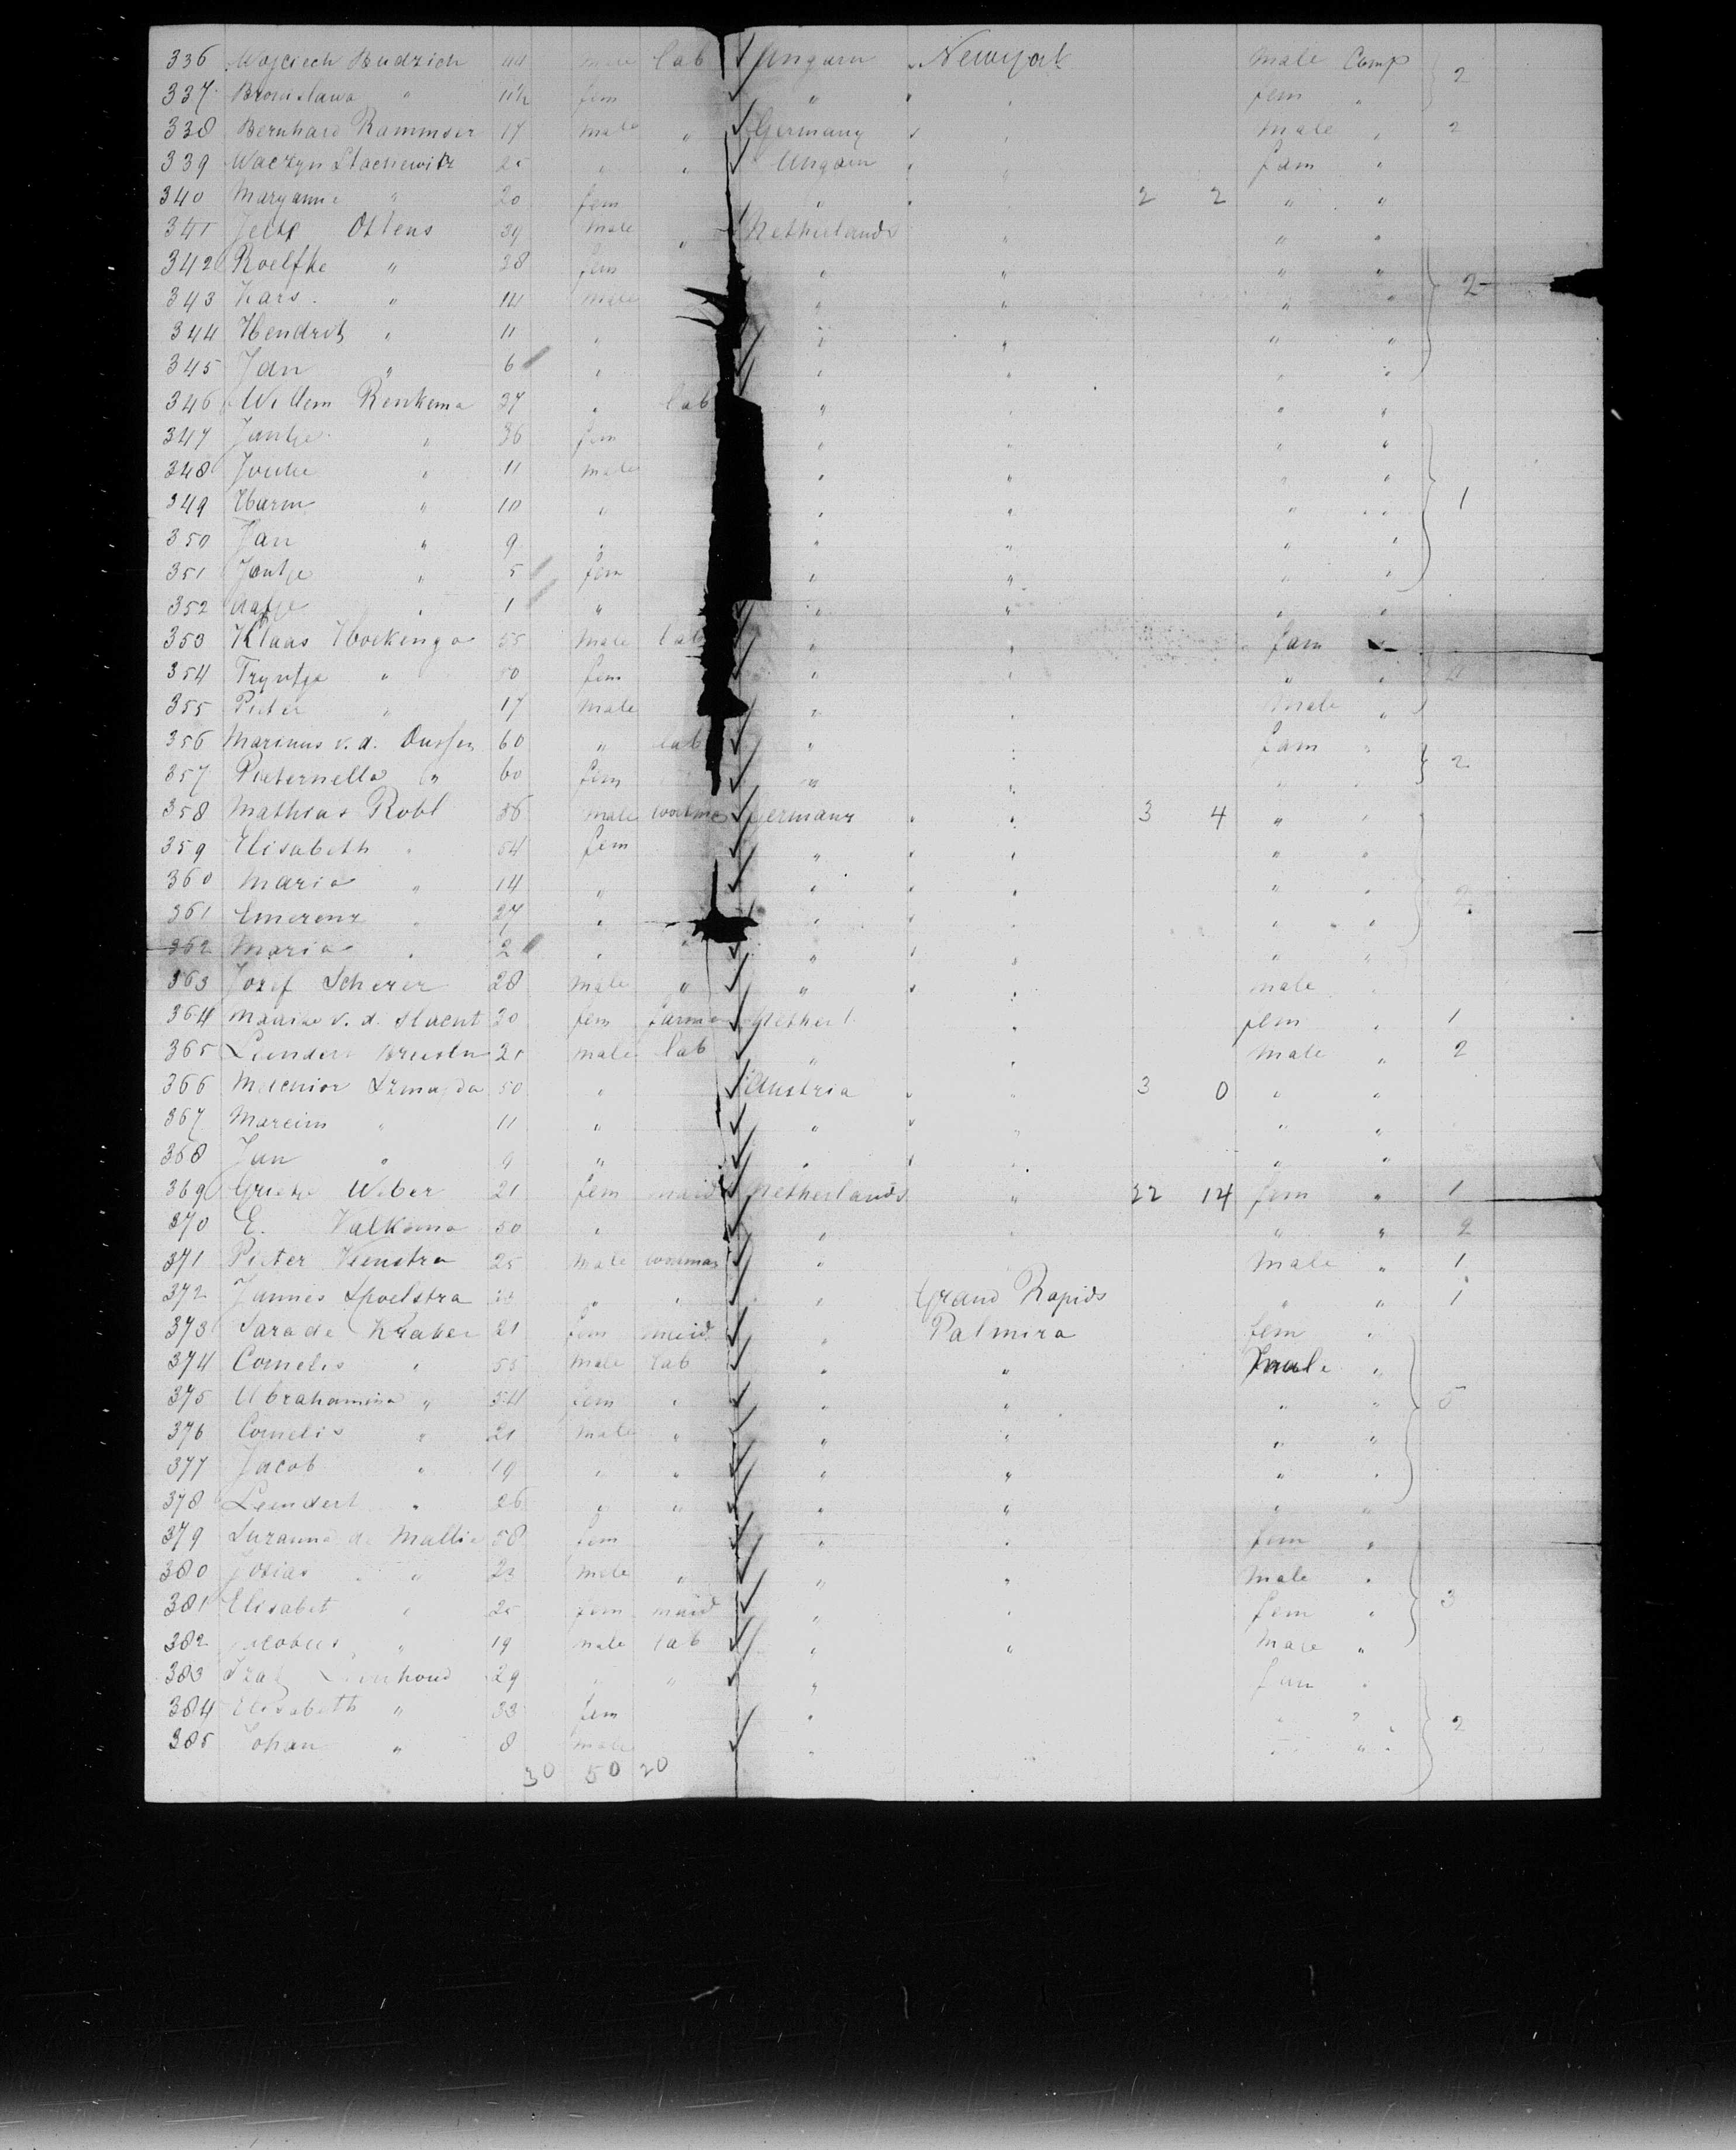 336 Wojciech Budzich 44 male lab Ungarn Newyork Male Comp 2
337 Bronislawa " 11½ fem " " fem "
338 Bernhard Rammser 17 male " Germany " Male " 2
339 25 " " Ungarn " fam "
340 Maryanne " 20 fem " " 2 2 " "
341 Ottens 39 male " Netherlands " " "
342 Roelfke " 38 fem " " " " 2
343 Kars " 14 male " " " "
344 Hendrik " 11 " " " " "
345 Jan " 6 " " " " "
346 Willem Renkema 37 " lab " " " "
347 Jantje " 36 fem " " " "
348 " 11 male " " " "
349 Harm " 10 " " " " " 1
350 Jan " 9 " " " " "
351 Jantje " 5 fem " " " "
352 Aafje " 1 " " " " "
353 Klaas Hoekenga 55 male lab " " fam "
354 Tryntje " 50 fem " " " "
355 Pieter " 17 male " " Male "
356 Marinus v. d. 60 " lab " " fam "
357 Pieternella " 60 fem " " " " 2
358 Mathias Robl 56 male Germany " 3 4 " "
359 Elisabeth " 54 fem " " " "
360 Maria " 14 " " " " "
361 Emerenz " 27 " " " " "
362 Maria " 2 " " " " " "
363 Josef Scherer 28 male " " " male "
364 v. d. 30 fem Netherl. " fem " 1
365 Leendert 25 male lab " " Male " 2
366 Melchior 50 " Austria " 3 0 " "
367 " 11 " " " " "
368 Jan " 9 " " " " "
369 Grietje Weber 21 fem maid Netherlands " 22 14 fem " 1
370 E. Valkema 50 " " " " " 2
371 Pieter Veenstra 25 male workman " " Male " 1
372 Jannes Spoelstra " " " Grand Rapids " " 1
373 Sara de Kraker 21 fem maid " Palmira fem "
374 Cornelis " 55 male lab " " male "
375 Abrahamina " 54 fem " " " " " 5
376 Cornelis " 21 male " " " " "
377 Jacob " 19 " " " " " "
378 Leendert " 26 " " " " " "
379 Suzanna de Mallie 58 fem " " fem "
380 Josias " 23 male " " " Male "
381 Elisabet " 25 fem maid " " fem " 3
382 Jacobus " 19 male lab " " Male "
383 29 " " " fam "
384 Elisabeth " 33 fem " " "
385 Johan " 8 male " " " 2
30 50 20